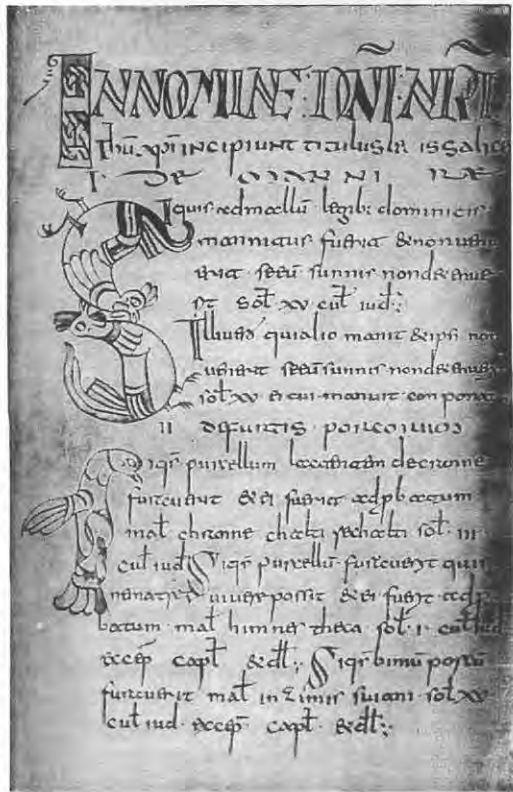 IN NOMINE DNI NRI
Ihu xpi incipiunt titulus legis salice
I DE MANNIRE
Siquis ad mallu legib; dominicis
mannitus fuerit & non uen
erit seeu sunnis non detenue
rt sol xv cul iud
Ille uero qui alio manit & ipse non
uenerit seeu sunnis non detenuer
sol xv ei cui manuit conponat
II DE FURTIS PORCORUM
Siqr purcellum lactantem de cranne
furauerit & ei fuerit adpbatum
mal chranne chalti rechalti sol III
cul iud Siqr purcellu furauerit qui
uiuere possit & ei fuerit adp
batum mal himnes theca sol I cul iud
excep capt & dl Siqr bimu porcu
furauerit mal in zimis suiani sol xv
cul iud excep capt & dl